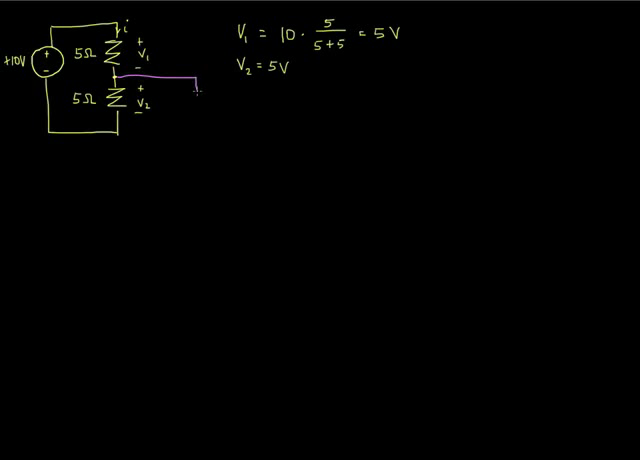 i
+10V
+
−
5Ω
+
V₁
−
5Ω
+
V₂
−
V₁ = 10 · 5/(5+5) = 5 V
V₂ = 5V